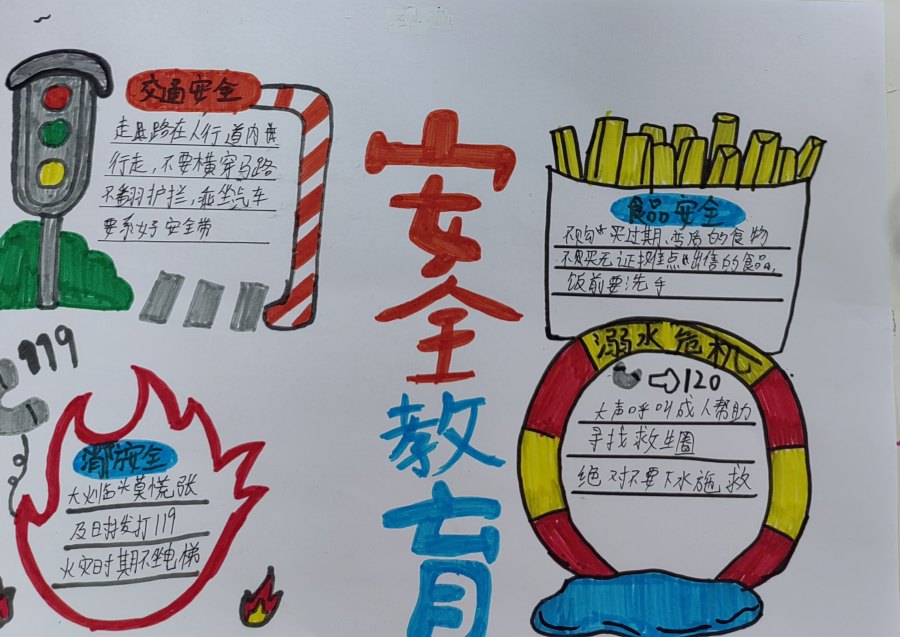 交通安全
走马路在人行道内
行走，不要横穿马路
不翻护拦，乘坐汽车
要系好安全带
安全教育
食品安全
不购买过期、变质的食物
不购买无证摊点出售的食品。
饭前要洗手
119
消防安全
火临头莫慌张
及时拨打119
火灾时期不坐电梯
溺水危机
⇨120
大声呼叫成人帮助
寻找救生圈
绝对不要下水施救